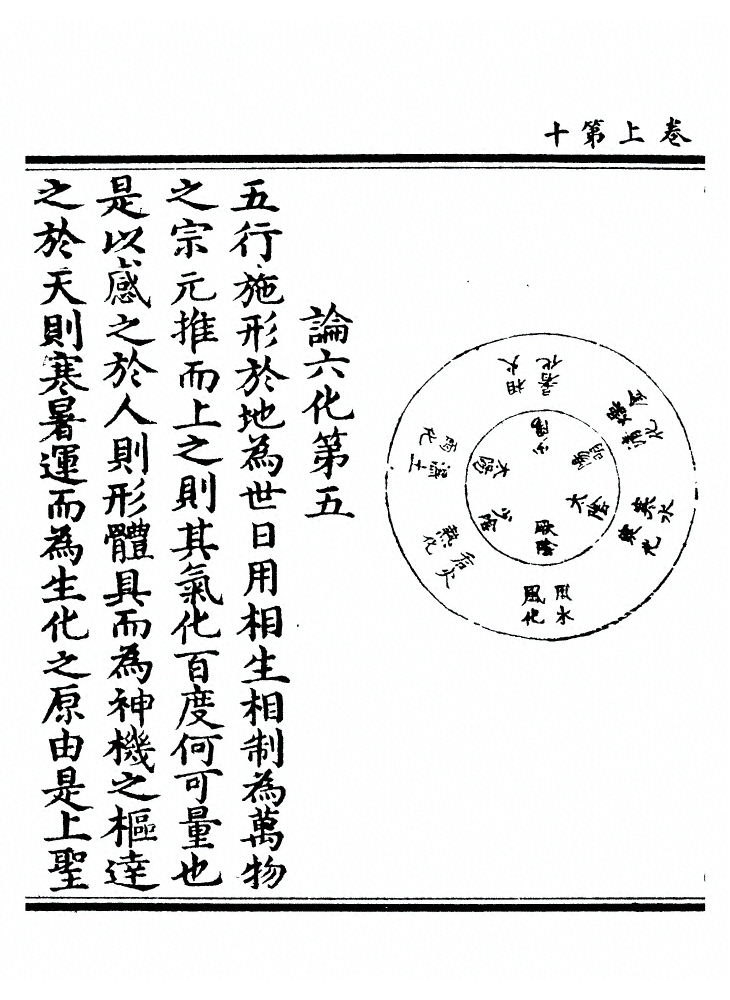 卷上第十
相火
少陽
厥陰
少陰
濕土
雨化
君火
熱化
清化
風化
論六化第五
五行施形於地為世日用相生相制為萬物
之宗元推而上之則其氣化百度何可量也
是以感之於人則形體具而為神機之樞達
之於天則寒暑運而為生化之原由是上聖